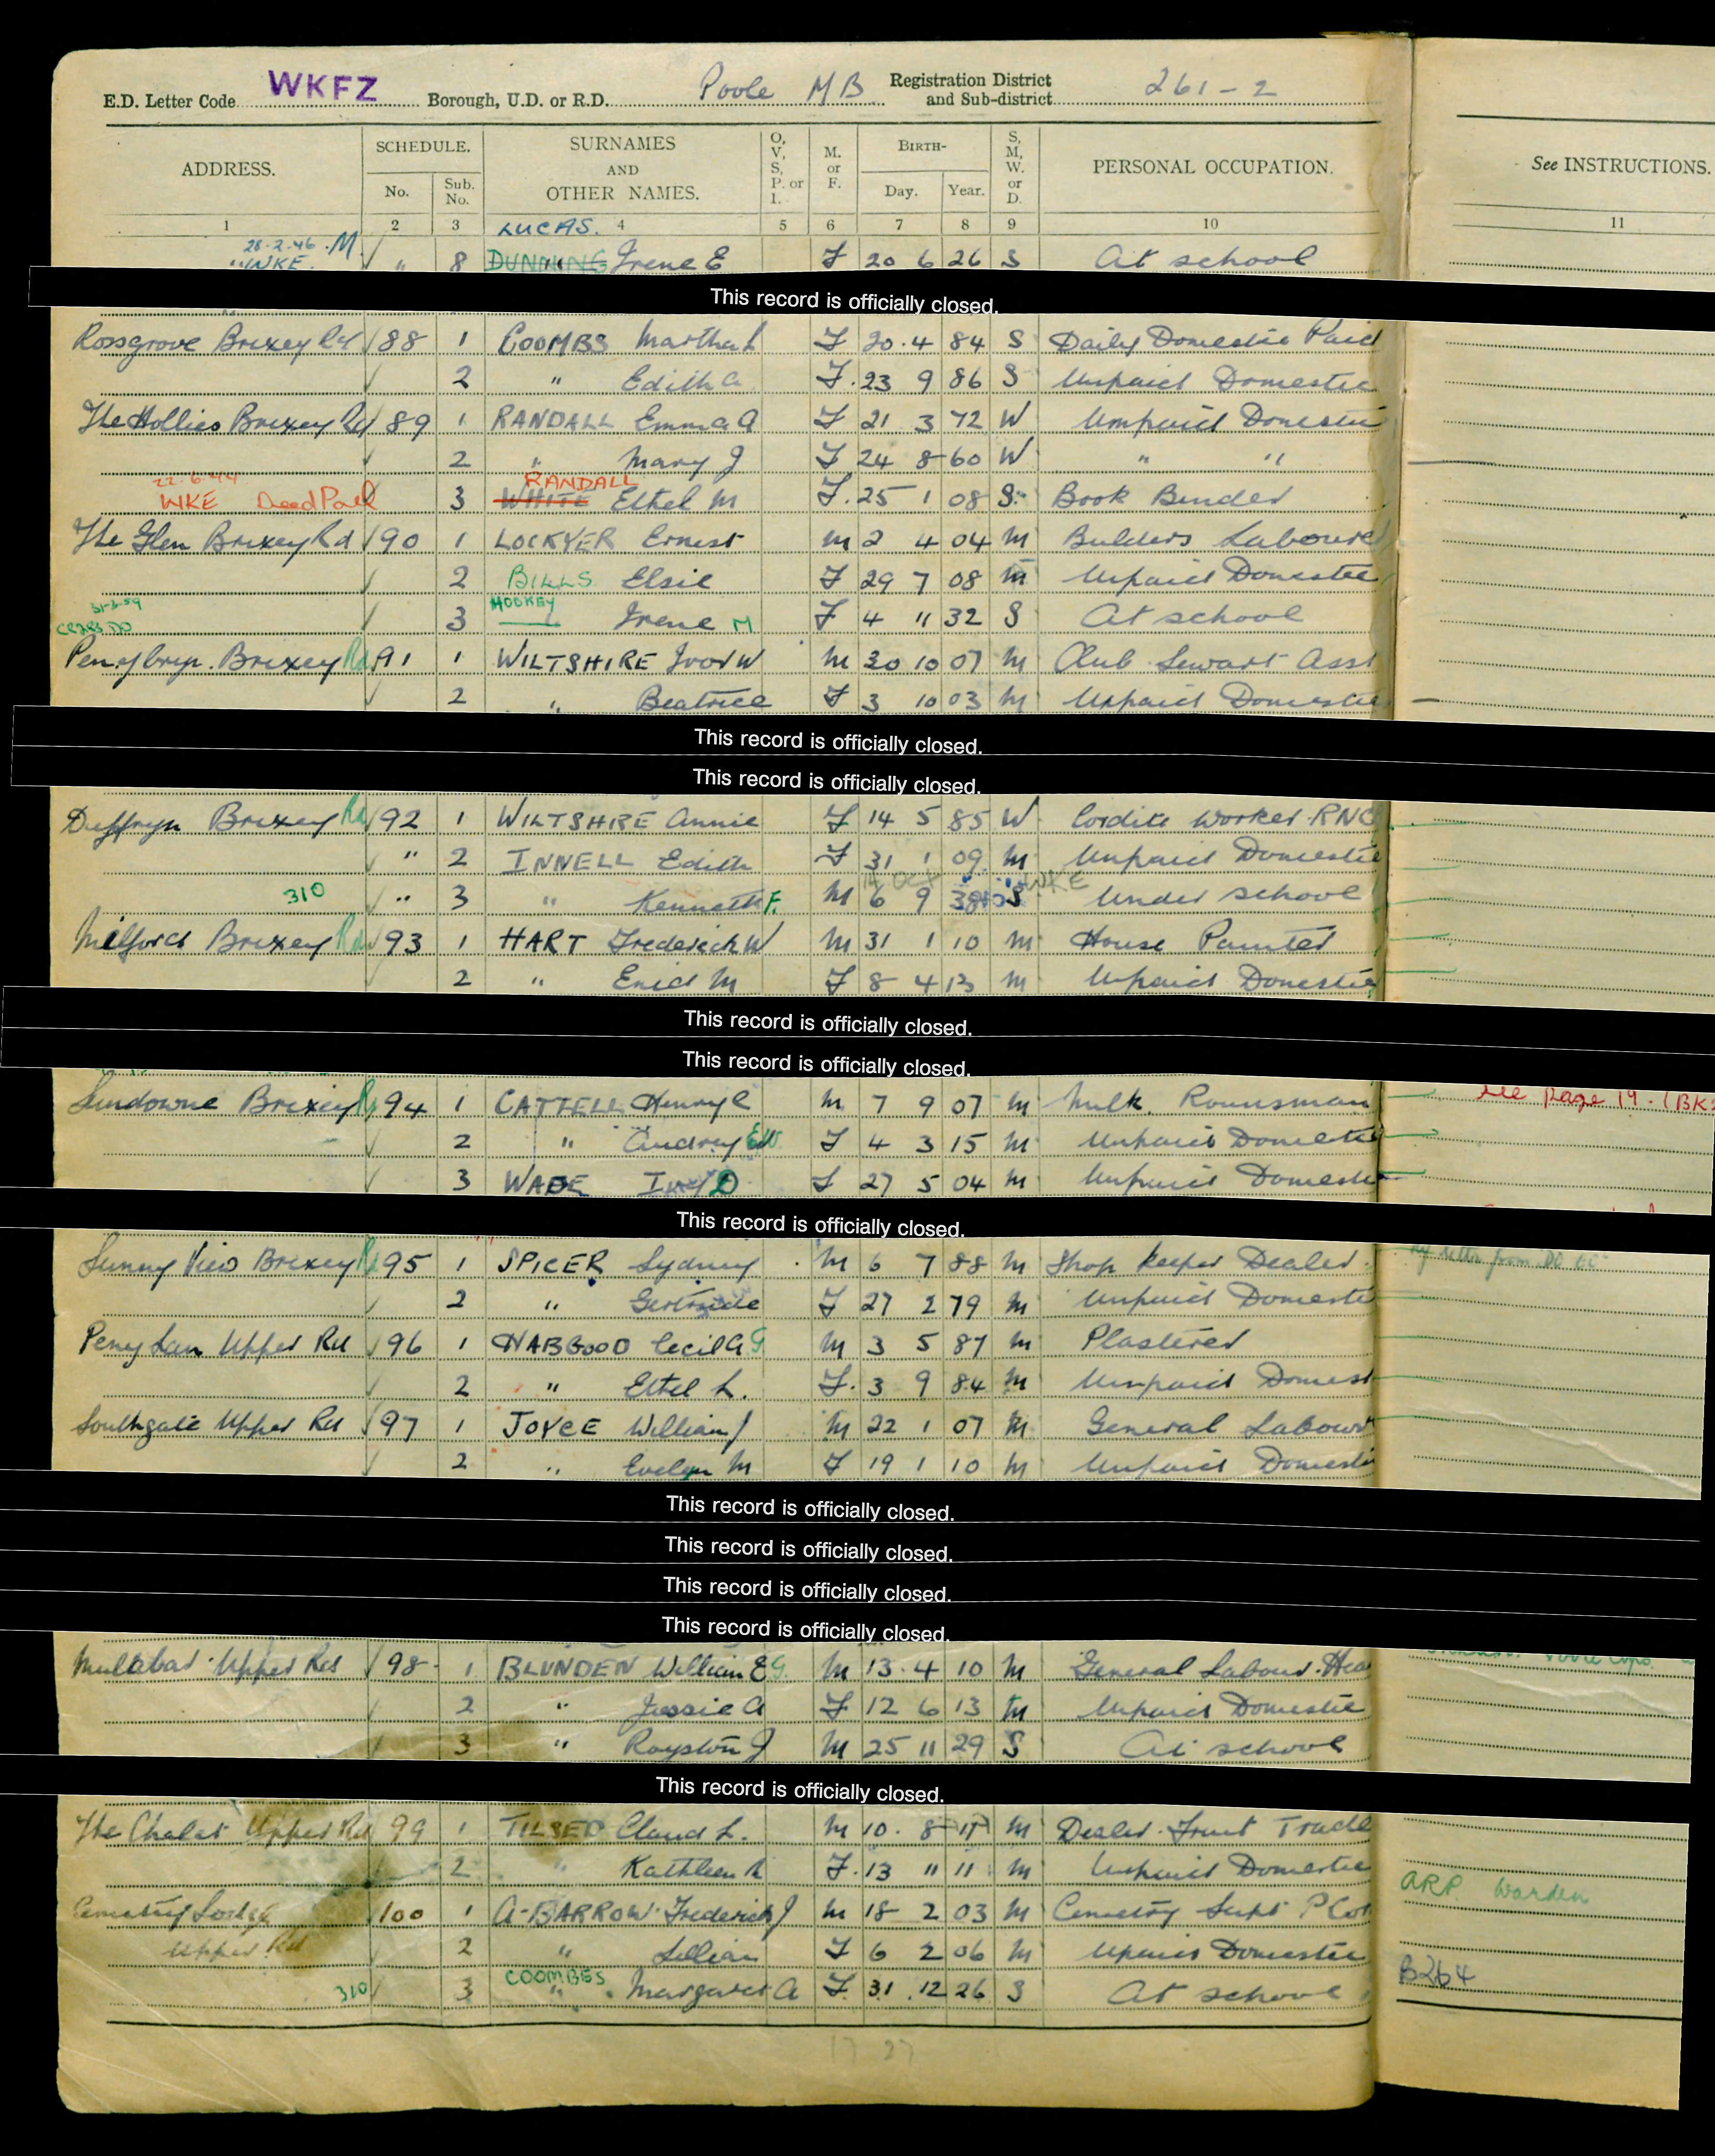 E.D. Letter Code WKFZ Borough, U.D. or R.D. Poole M B Registration District and Sub-district 261-2
ADDRESS. SCHEDULE. No. Sub. No. SURNAMES AND OTHER NAMES. O, V, S, P. or I. M. or F. BIRTH- Day. Year. S, M, W. or D. PERSONAL OCCUPATION. See INSTRUCTIONS.
1 2 3 4 5 6 7 8 9 10 11
LUCAS.
28-2-46 M
WKE. " 8 DUNNING " Irene E F 20 6 26 S At school
This record is officially closed.
Rossgrove Brixey Rd 88 1 COOMBS Martha L F 20 4 84 S Daily Domestic Paid
2 " Edith A F 23 9 86 S Unpaid Domestic
The Hollies Brixey Rd 89 1 RANDALL Emma A F 21 3 72 W Unpaid Domestic
2 " Mary J F 24 8 60 W " "
22-6-44 RANDALL
WKE Deed Poll 3 WHITE Ethel M F 25 1 08 S Book Binder
The Glen Brixey Rd 90 1 LOCKYER Ernest M 2 4 04 M Bulders Labourer
2 BILLS Elsie F 29 7 08 M Unpaid Domestic
31-3-59 HOOKEY
3 Irene M F 4 11 32 S At school
Brixey Rd 91 1 WILTSHIRE Ivor W M 30 10 07 M Club Stewart Asst
2 " Beatrice F 3 10 03 M Unpaid Domestic
This record is officially closed.
This record is officially closed.
Duffryn Brixey Rd 92 1 WILTSHIRE Annie F 14 5 85 W Cordite Worker RNC
" 2 INNELL Edith F 31 1 09 M Unpaid Domestic
310 " 3 " Kenneth F. M 6 9 38 S Under school
Milford Brixey Rd 93 1 HART Frederick W M 31 1 10 M House Painter
2 " Enid M F 8 4 13 M Unpaid Domestic
This record is officially closed.
This record is officially closed.
Brixey Rd 94 1 CATTELL Henry C M 7 9 07 M Milk Rounsman See page 19.
2 " Audrey F 4 3 15 M Unpaid Domestic
3 WADE Ivy D F 27 5 04 M Unpaid Domestic
This record is officially closed.
Sunny View Brixey Rd 95 1 SPICER Sydney M 6 7 88 M Shop Keeper Dealer
2 " Gertrude F 27 2 79 M Unpaid Domestic
Peny Lan Upper Rd 96 1 HABGOOD Cecil A G M 3 5 87 M Plasterer
2 " Ethel L. F 3 9 84 M Unpaid Domest
Southgate Upper Rd 97 1 JOYCE William J M 22 1 07 M General Labour
2 " Evelyn M F 19 1 10 M Unpaid Domestic
This record is officially closed.
This record is officially closed.
This record is officially closed.
This record is officially closed.
Upper Rd 98 1 BLUNDEN William E G. M 13 4 10 M General Labour Hea
2 " Jessie A F 12 6 13 M Unpaid Domestic
3 " Royston J M 25 11 29 S At school
This record is officially closed.
The Chalet Upper Rd 99 1 TILSED Claud L. M 10 8 11 M Dealer Fruit Trade
2 " Kathleen R F 13 11 11 M Unpaid Domestic
ARP Warden
Cemetery Lodge 100 1 A-BARROW Frederick J M 18 2 03 M Cemetery Supt
Upper Rd 2 " Lillian F 6 2 06 M Unpaid Domestic
COOMBES B264
310 3 " Margaret A F 31 12 26 S At school